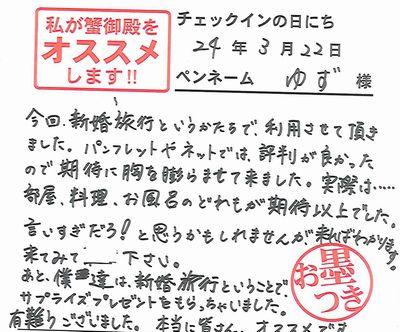 私が蟹御殿を
オススメ
します!!
チェックインの日にち
24年 3月 22日
ペンネーム ゆず 様
今回、新婚旅行というかたちで、利用させて頂き
ました。パンフレットやネットでは、評判が良かった
ので期待に胸を膨らませて来ました。実際は……
部屋、料理、お風呂のどれもが期待以上でした。
言いすぎだろ!と思うかもしれませんが来ればわかります。
来てみて 下さい。
あと、僕達は、新婚旅行ということで、
サプライズプレゼントをもらっちゃいました。
有難うございました。本当に皆さん、オススメです
お墨つき